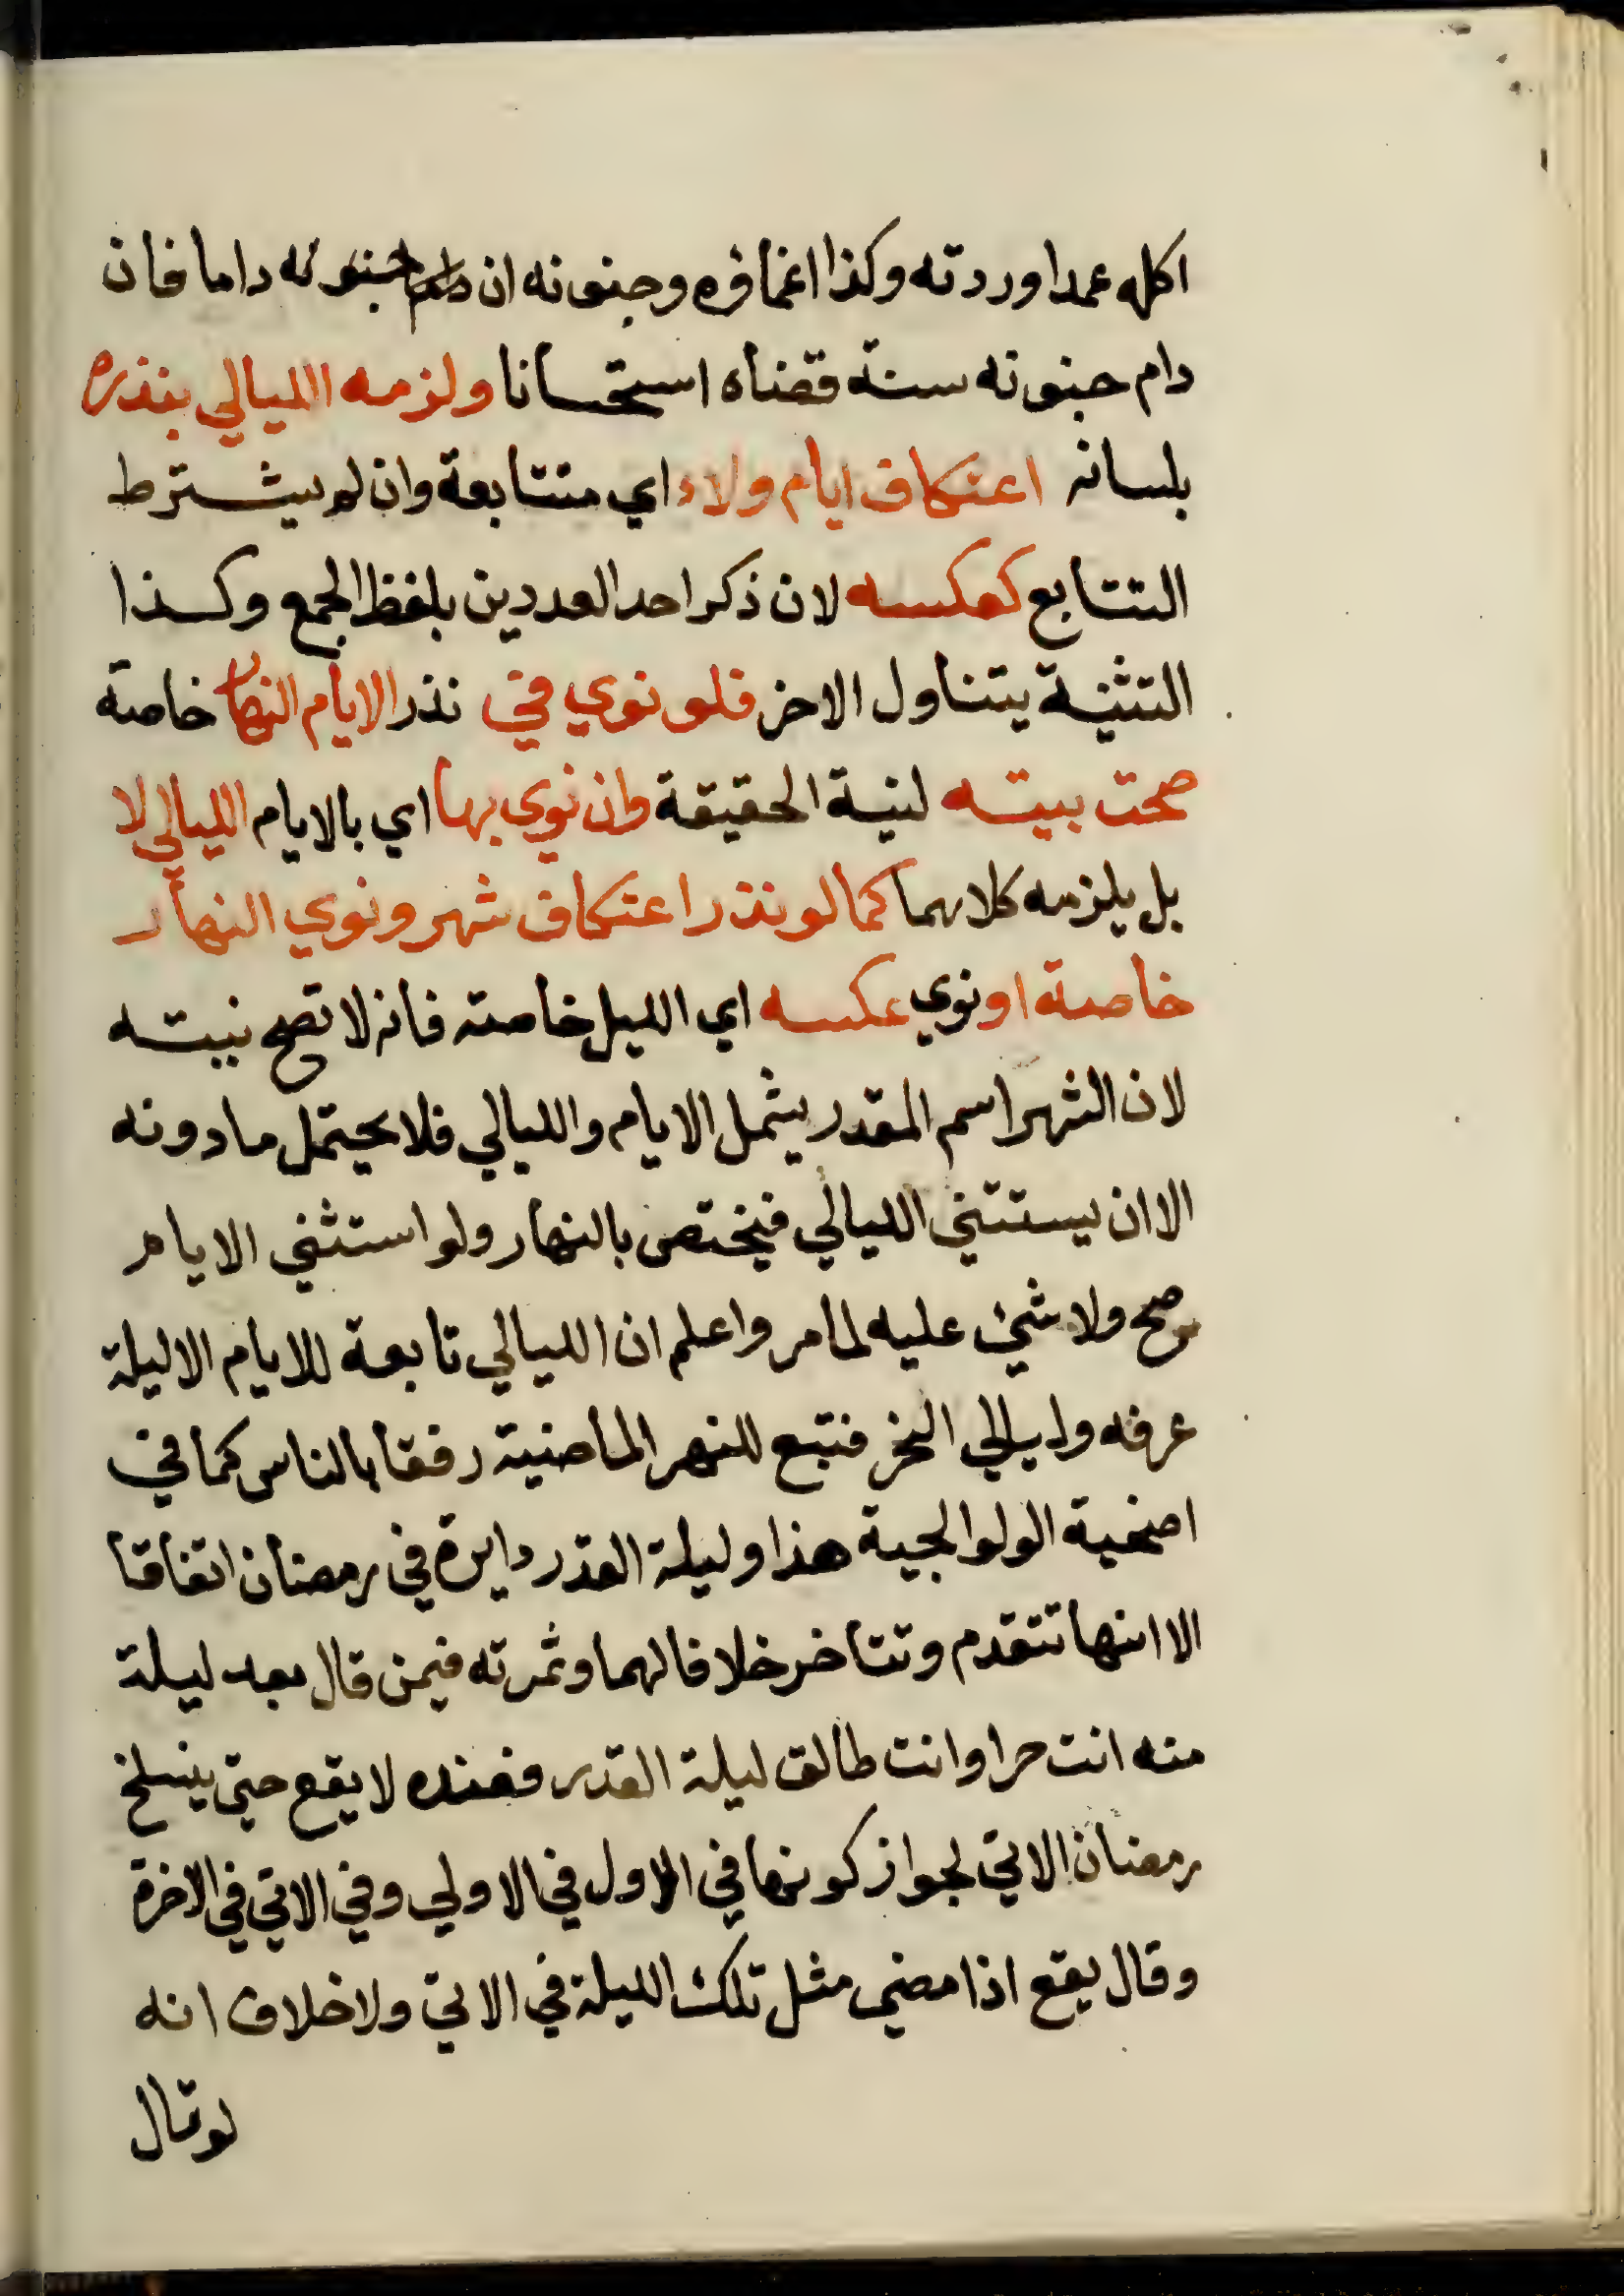 اكله عمدا وردته وكذا اغماؤه وجنونه ان دام جنونه داما فان
دام جنونه سنة قضاه استحسانا ولزمه الليالي بنذره
بلسانه اعتكاف ايام ولاء اي متتابعة وان لم يشترط
التتابع كعكسه لان ذكر احد العددين بلفظ الجمع وكذا
التثنية يتناول الاخر فلو نوي في نذر الايام النهار خاصة
صحت نيته لنية الحقيقة وان نوي بها اي بالايام الليالي لا
بل يلزمه كلاهما كما لو نذر اعتكاف شهر ونوي النهار
خاصة او نوي عكسه اي الليل خاصة فانه لا تصح نيته
لان الشهر اسم المقدر يشمل الايام والليالي فلا يحتمل ما دونه
الا ان يستثني الليالي فيختص بالنهار ولو استثني الايام
صح ولا شئ عليه لما مر واعلم ان الليالي تابعة للايام الا ليلة
عرفه وليالي النحر فتبع للنهر الماضية رفقا بالناس كما في
اضحية الولوالجية هذا وليلة القدر دايرة في رمضان اتفاقا
الا انها تتقدم وتتاخر خلافا لهما وثمرته فيمن قال بعد ليلة
منه انت حر او انت طالق ليلة القدر فعنده لا يقع حتي ينسلخ
رمضان الاتي لجواز كونها في الاول في الاولي وفي الاتي في الاخرة
وقال يقع اذا مضي مثل تلك الليلة في الاتي ولا خلاف انه
لو قال